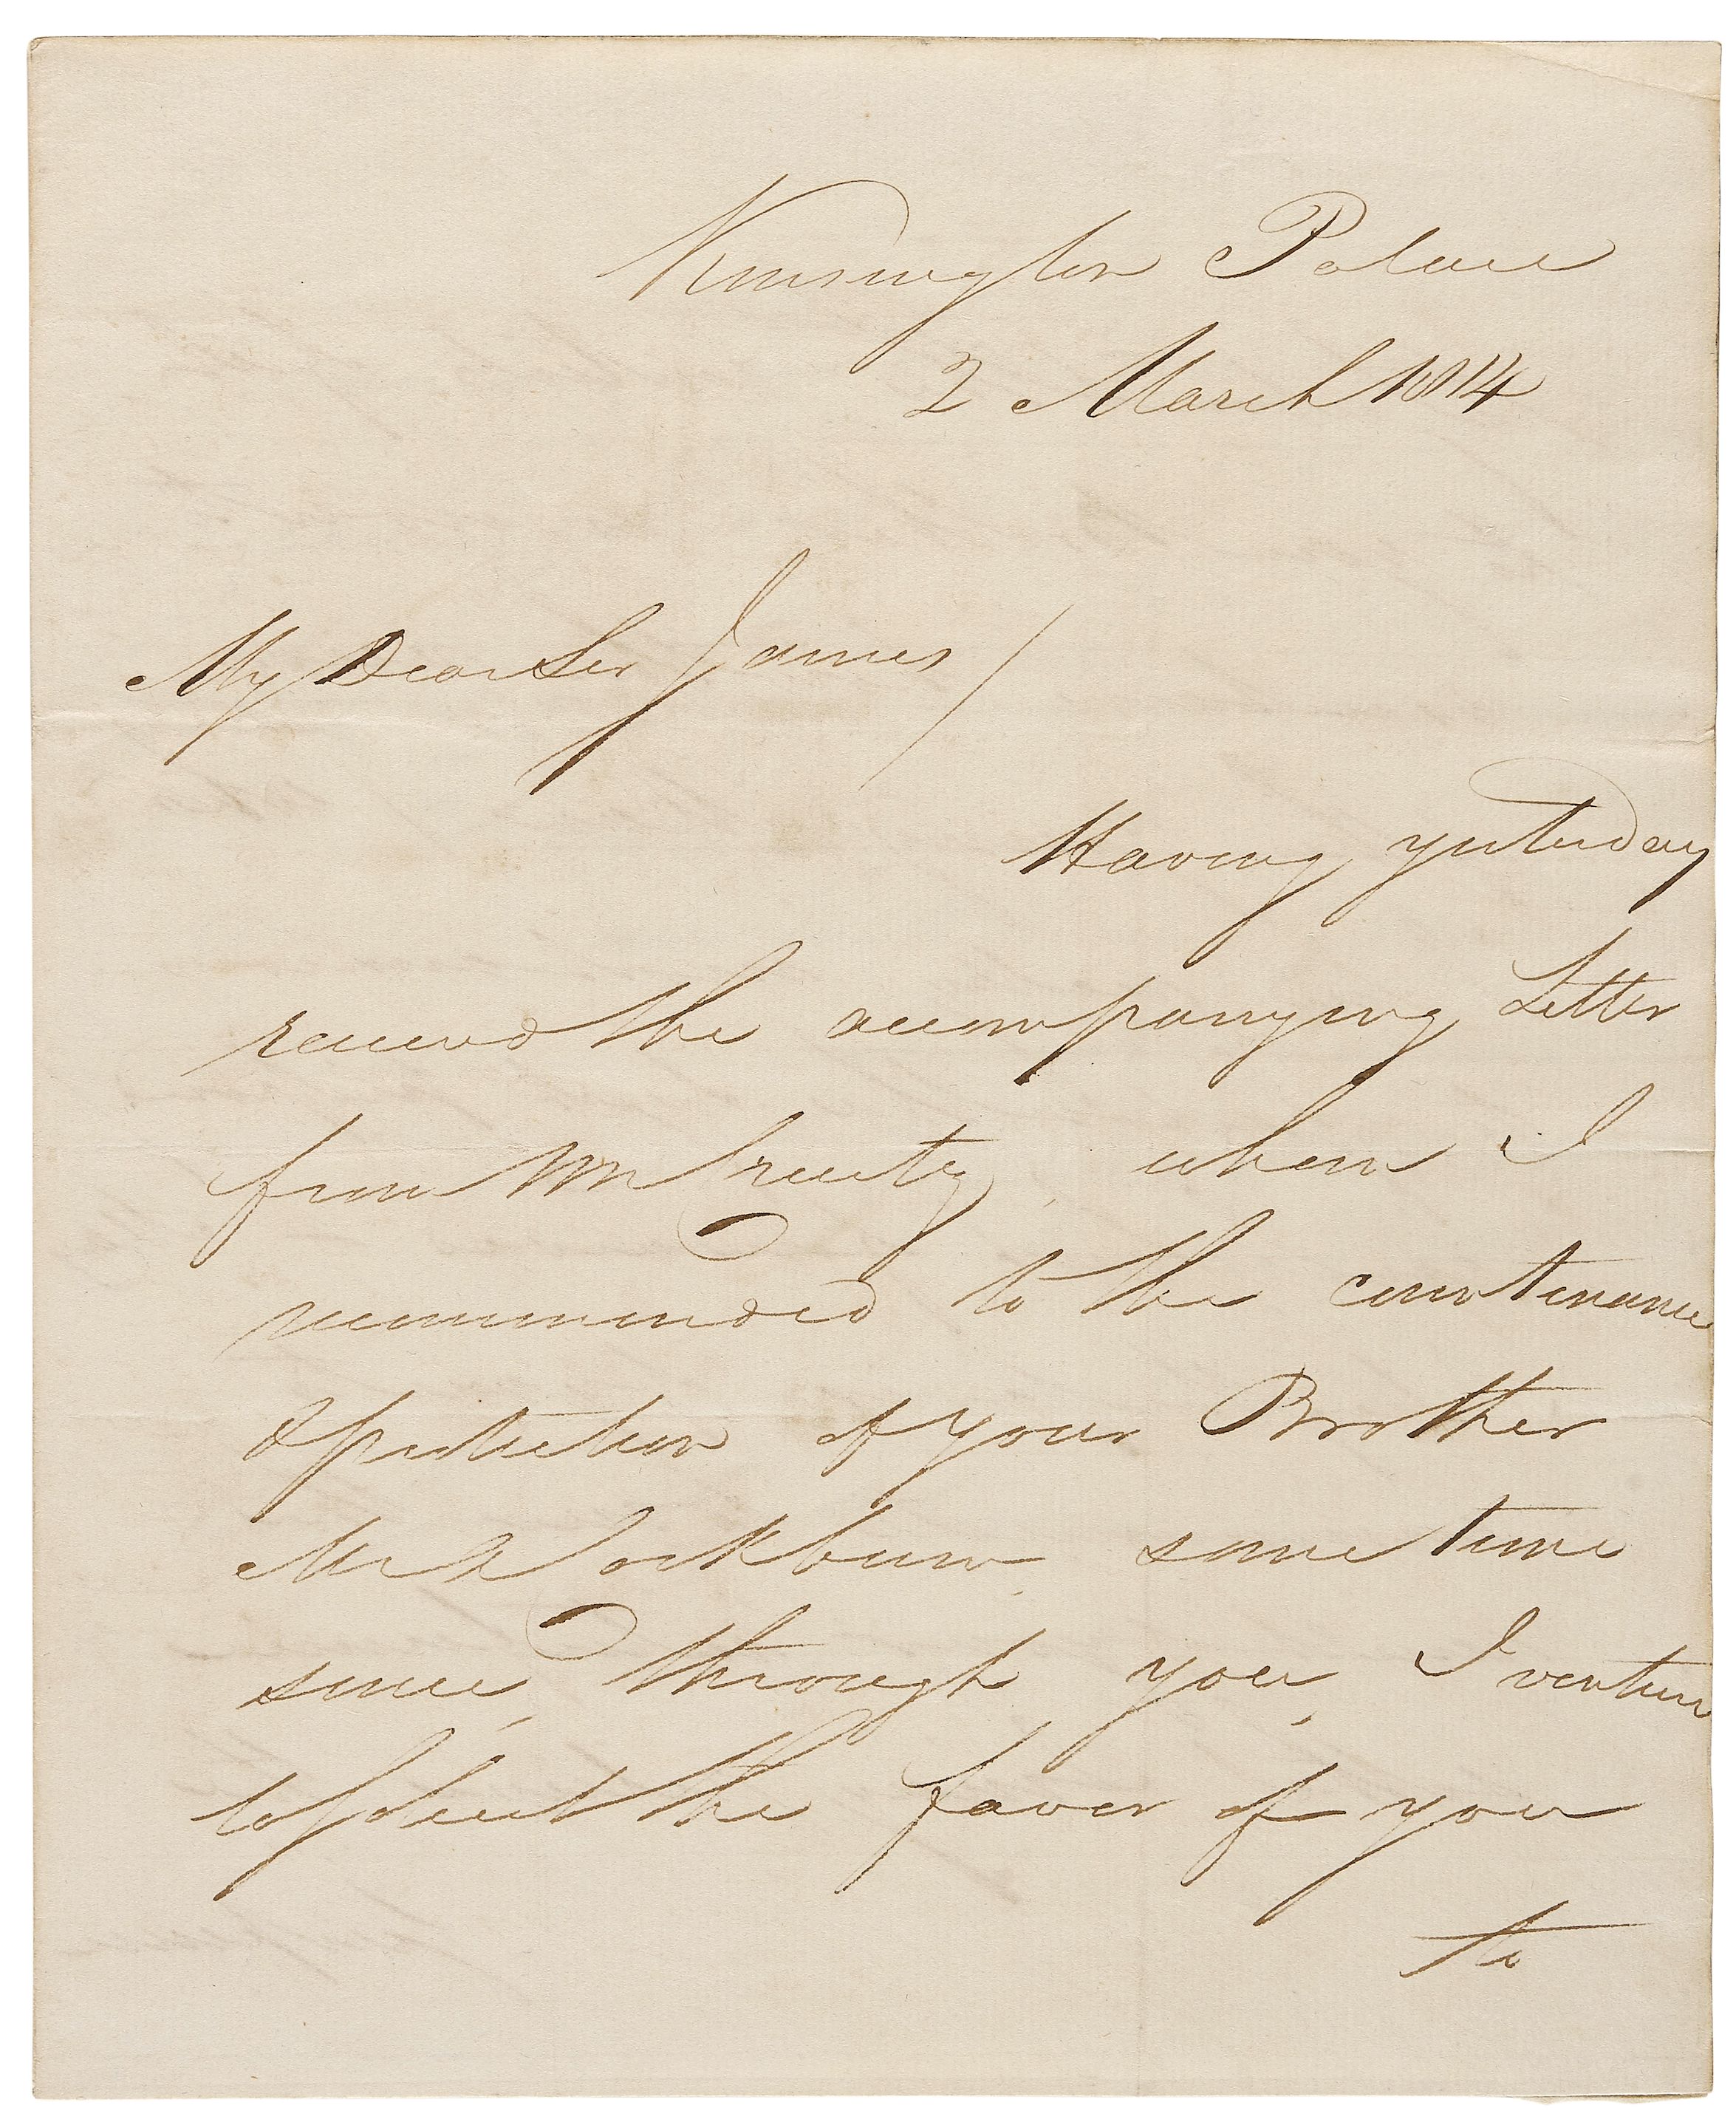 Kensington Palace
2 March 1814
My Dear Sir James/
Having yesterday
received the accompanying Letter
from Mr whom I
recommended to the countenance
& protection of your Brother
Mr Cockburn, some time
since, through you, I venture
to solicit the favor of you
to